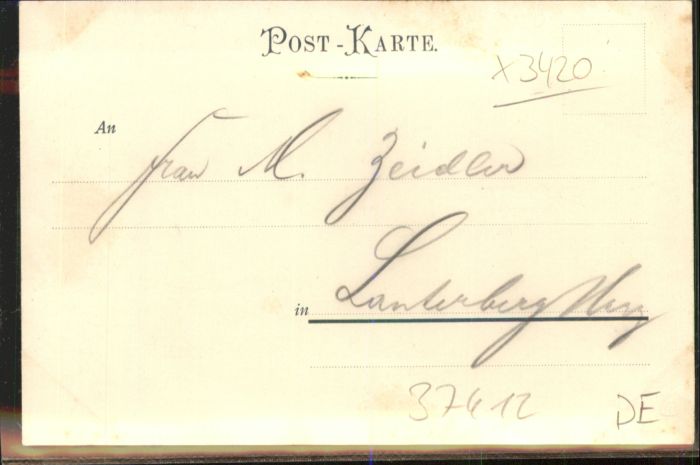 POST-KARTE.
x3420
An
Frau M. Zeidler
in Lauterberg Harz
37412
DE